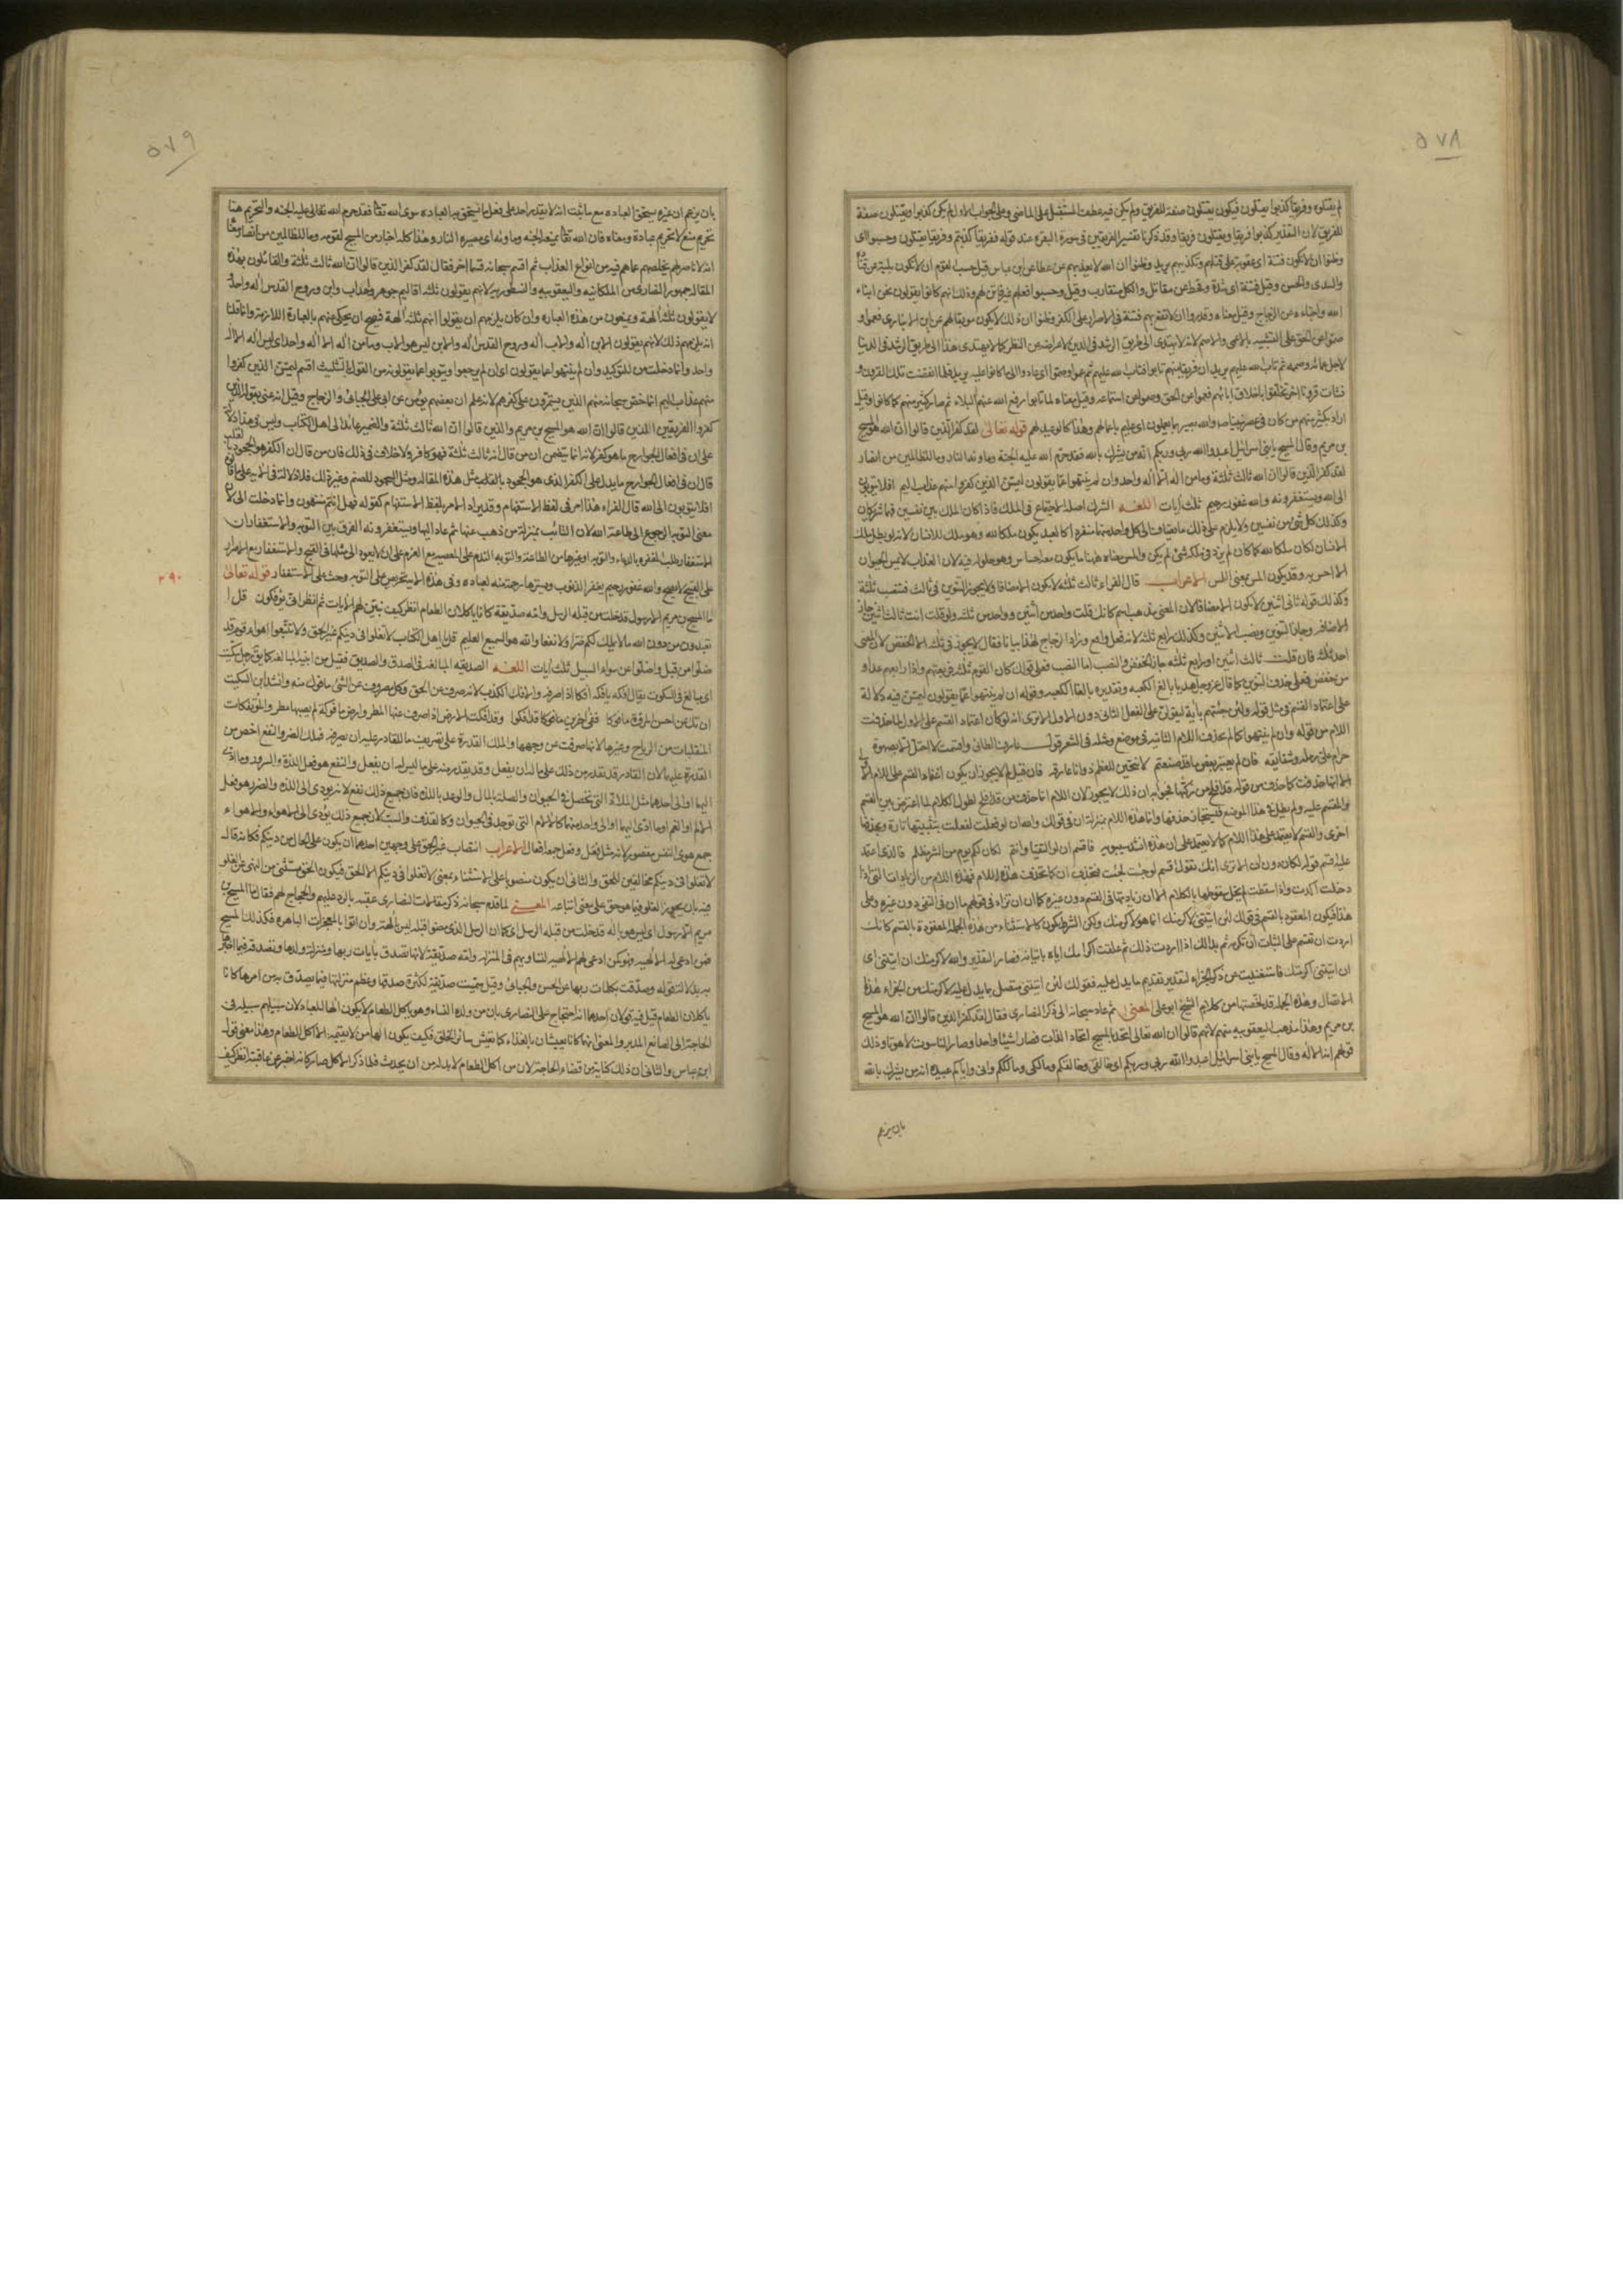 ٥٧٨
لم يقتلوه وفريقا كذبوا يقتلون فيكون يقتلون صفة للفريق ولم يكن فيه عطف المستقبل على الماضي وعلى الجواب الاول لم يكن كذبوا ويقتلون صفة
للفريق لان التقدير كذبوا فريقا ويقتلون فريقا وقد ذكرنا تفسير الفريقين في سورة البقره عند قوله ففريقا كذبتم وفريقا تقتلون وحسبوا اى
وظنوا ان لا يكون فتنة اى عقوبة على قتلهم وتكذيبهم يريد وظنوا ان الله لا يعذبهم عن عطا عن ابن عباس قيل حسب القوم ان لا يكون بلية عن قتادة
والسدى والحسن وقيل فتنة اى شدة وقحط عن مقاتل والكل متقارب وقيل وحسبوا فعلهم غير فاتن لهم وذلك انهم كانوا يقولون نحن ابناء
الله واحباءه عن الزجاج وقيل معناه وقدروا ان لا تقع بهم فتنة في الاصرار على الكفر وظنوا ان ذلك لا يكون موبقا لهم عن ابن الانبارى فعموا و
صموا عن الحق على التشبيه بالاعمى والاصم لانه لا يهتدى الى طريق الرشد في الدين لاعراضه عن النظر كما لا يهتدى هذا الى طريق الرشد في الدنيا
لاجل عماه وصممه ثم تاب الله عليهم يريد ان فريقا منهم تابوا فتاب الله عليهم ثم عموا وصموا اى عادوا الى ما كانوا عليه يريد فلما انقضت تلك القرون و
نشأت قرون اخر تخلقوا باخلاق ابائهم فعموا عن الحق وصموا عن استماعه وقيل معناه لما تابوا رفع الله عنهم البلاء ثم صار كثير منهم كما كانوا وقيل
اراد بكثير منهم من كان في عصر نبينا صلى والله بصير بما يعملون اى عليم باعمالهم وهذا كالوعيد لهم قوله تعالى لقد كفر الذين قالوا ان الله هو المسيح
بن مريم وقال المسيح يا بني اسرائيل اعبدوا الله ربي وربكم انه من يشرك بالله فقد حرم الله عليه الجنة وماويه النار وما للظالمين من انصار
لقد كفر الذين قالوا ان الله ثالث ثلثة وما من اله الا اله واحد وان لم ينتهوا عما يقولون ليمسن الذين كفروا منهم عذاب اليم افلا يتوبون
الى الله ويستغفرونه والله غفور رحيم ثلث ايات اللغـــة الشرك اصله الاجتماع في الملك فاذا كان الملك بين نفسين فهما شريكان
وكذلك كل شئ بين نفسين ولا يلزم على ذلك ما يضاف الى كل واحد منهما منفردا كالعبد يكون ملكا لله وهو ملك للانسان لانه لو بطل ملك
الانسان لكان ملكا لله كما كان لم يزد في ملكه شئ لم يكن والمس معناه ههنا ما يكون معه احساس وهو حلوله فيه لان العذاب لا يمس الحيوان
الا احس به وقد يكون المس بمعنى اللمس الاعراب قال الفراء ثالث ثلثة لا يكون الا مضافا ولا يجوز التنوين في ثالث فتنصب ثلثة
وكذلك قوله ثاني اثنين لا يكون الا مضافا لان المعنى مذهب اسم كانك قلت واحد من اثنين وواحد من ثلثه ولو قلت انت ثالث اثنين جاز
الاضافه وجاز التنوين ونصب الاثنين وكذلك رابع ثلثه لانه فعل واقع وزاد الزجاج لهذا بيانا فقال لا يجوز في ثلثه الا الخفض لان المعنى
احد ثلثه فان قلت ثالث اثنين او رابع ثلثه جاز الخفض والنصب اما النصب فعلى قولك كان القوم ثلثه فربعتهم وانا رابعهم غدا و
من خفض فعلى حذف التنوين كما قال عز وجل هديا بالغ الكعبه وتقديره بالغا الكعبه وقوله ان لم ينتهوا عما يقولون ليمسن فيه دلالة
على اعتماد القسم في مثل قوله ولئن جئتهم بآية ليقولن على الفعل الثاني دون الاول الا ترى انه لو كان اعتماد القسم على الاول لما حذفت
اللام من قوله وان لم ينتهوا كما لم يحذف اللام الثانيه في موضع ومثله في الشعر قولـ عارف الطائى
حرام على رمله وشقائقه فان لم يغير بعض ما قد صنعتم لانتحين للعظم ذو انا عارقه فان قيل لم لا يجوز ان يكون اعتماد القسم على اللام الاولى
الا انها حذفت كما حذف من قوله قد افلح من زكيها فجوابه ان ذلك لا يجوز لان اللام انما حذف من قد افلح لطول الكلام لما اعترض بين القسم
والمقسم عليه ولم يطل في هذا الموضع
اخرى والقسم لا يعتمد على هذا اللام كما لا يعتمد على ان هذه انشد سيبويه فاقسم ان لو التقينا وانتم لكان لكم يوم من الشر مظلم فالذى اعتمد
عليه قسم قوله لكان دون ان الا ترى انك تقول اقسم لو جئت لجئت فتحذف ان كما تحذف هذه اللام فهذه اللام من الزيادات التي اذا
دخلت اكدت واذا اسقطت لم يخل سقوطها بالكلام الا ان زيادتها في القسم دون غيره كما ان
هذا فيكون المعقود بالقسم في قولك لئن اتيتني لاكرمنك انما هو لاكرمنك ولكن الشرط يكون كالاستثناء من هذه الجملة المعقودة بالقسم كانك
اردت ان تقسم على البتات ان تكرمه ثم بدا لك اذا اردت ذلك ثم علقت اكرامك اياه باتيانه فصار التقدير والله لاكرمنك ان اتيتني اى
ان اتيتني اكرمتك فاستغنيت عن ذكر الجزاء لتقديم ما يدل عليه فقولك لئن اتيتني متصل بما يدل عليه لاكرمنك من الجزاء هذا
الاتصال وهذه الجمله قد لخصتها من كلام الشيخ ابو على المعنى ثم عاد سبحانه الى ذكر النصارى فقال لقد كفر الذين قالوا ان الله هو المسيح
بن مريم وهذا مذهب اليعقوبيه منهم لانهم قالوا ان الله تعالى اتحد بالمسيح اتحاد الذات فصارا شيئا واحدا وصار الناسوت لاهوتا وذلك
قولهم انه الاله وقال المسيح يا بني اسرائيل اعبدوا الله ربي وربكم اى خالقي وخالقكم ومالكي ومالككم واني واياكم عبيده انه من يشرك بالله
بان يزعم
٥٧٩
بان يزعم ان غيره يستحق العباده مع ما ثبت انه لا يقدر احد على فعل ما يستحق به العباده سوى الله تعا فقد حرم الله تعالى عليه الجنه والتحريم هنا
تحريم منع لا تحريم عبادة ومعناه فان الله تعا يمنعه الجنه وماويه اى مصيره النار وهذا كله اخبار من المسيح لقومه وما للظالمين من انصار معناه
انه لا ناصر لهم يخلصهم مما هم فيه من انواع العذاب ثم اقسم سبحانه قسما اخر فقال لقد كفر الذين قالوا ان الله ثالث ثلثة والقائلون بهذه
المقاله جمهور النصارى من الملكانيه واليعقوبيه والنسطوريه لانهم يقولون ثلثه اقانيم جوهر واحد اب وابن وروح القدس اله واحد و
لا يقولون ثلثه الهة ويمنعون من هذه العباره وان كان يلزمهم ان يقولوا انهم ثلثه الهة فصح ان يحكى عنهم بالعبارة اللازمة وانما قلنا
انه يلزمهم ذلك لانهم يقولون الابن اله والاب اله وروح القدس اله والابن ليس هو الاب وما من اله الا اله واحد اى ليس اله الا اله
واحد وانما دخلت من للتوكيد وان لم ينتهوا عما يقولون اى ان لم يرجعوا ويتوبوا عما يقولونه من القول بالتثليث اقسم ليمسن الذين كفروا
منهم عذاب اليم انما خص سبحانه منهم الذين يستمرون على كفرهم لانه علم ان بعضهم يؤمن عن ابي على الجبائى والزجاج وقيل انه عنى بقوله الذين
كفروا الفريقين الذين قالوا ان الله هو المسيح بن مريم والذين قالوا ان الله ثالث ثلثة والضمير عائد الى اهل الكتاب وليس في هذا دلالة
على ان في افعال الجوارح ما هو كفر لانه انما يتضمن ان من قال انه ثالث ثلثة فهو كافر ولا خلاف في ذلك فان من قال ان الكفر هو الجحود بالقلب
قال ان في افعال الجوارح ما يدل على الكفر الذى هو الجحود بالقلب مثل هذه المقاله ومثل السجود للصنم وغير ذلك فلا دلالة في الاية على ما قالوه
افلا يتوبون الى الله قال الفراء هذا امر في لفظ الاستفهام وقد يراد الامر بلفظ الاستفهام كقوله فهل انتم منتهون وانما دخلت الى لان
معنى التوبه الرجوع الى طاعة الله لان التائب بمنزلة من ذهب عنها ثم عاد اليها ويستغفرونه الفرق بين التوبه والاستغفار ان
الاستغفار طلب المغفره بالدعاء والتوبه او غيرهما من الطاعة والتوبه الندم على المعصيه مع العزم على ان لا يعود الى مثلها في القبح والاستغفار مع الاصرار
على القبيح لا يصح والله غفور رحيم يغفر الذنوب ويسترها رحمة منه لعباده وفي هذه الاية تحريص على التوبه وحث على الاستغفار قوله تعالى
ما المسيح بن مريم الا رسول قد خلت من قبله الرسل وامه صديقة كانا ياكلان الطعام انظر كيف نبين لهم الايات ثم انظر انى يؤفكون قل ا
تعبدون من دون الله ما لا يملك لكم ضرا ولا نفعا والله هو السميع العليم قل يا اهل الكتاب لا تغلوا في دينكم غير الحق ولا تتبعوا اهواء قوم قد
ضلوا من قبل واضلوا عن سواء السبيل ثلث ايات اللغـــة الصديقه المبالغه في الصدق والصديق فعيل من ابنية المبالغه كما يق رجل سكيت
اى مبالغ في السكوت يقال افكه يافكه افكا اذا صرفه والافك الكذب لانه صرف عن الحق وكل مصروف عن الشئ مافوك عنه وانشد ابن السكيت
ان تك عن احسن المروة مافوكا ففي اخرين قد افكوا وقد افكت الارض اذا صرف عنها المطر وارض مافوكة لم يصبها مطر والمؤتفكات
المتقلبات من الرياح وغيرها لانها صرفت عن وجهها والملك القدرة على تصريف ما للقادر عليه ان يصرفه فملك الضر والنفع اخص من
القدرة عليهما لان القادر قد يقدر من ذلك على ما له ان يفعل وقد يقدر منه على ما ليس له ان يفعل والنفع هو فعل اللذة والسرور وما ادى
اليهما او الى احدهما مثل الملاذ التي تحصل في الحيوان والصلة بالمال والوعد باللذه فان جميع ذلك نفع لانه يودى الى اللذه والضرر هو فعل
الالم او الغم او ما ادى اليهما او الى واحد منهما كالالام التي توجد في الحيوان وكالقذف والسب لان جميع ذلك يؤدى الى الالم والاهواء
جمع هوى النفس مقصور لانه مثل فعل وفعل جمعه افعال الاعراب انتصاب غير الحق على وجهين احدهما ان يكون على الحال من دينكم فكانه قالـ
لا تغلوا في دينكم مخالفين للحق والثاني ان يكون منصوبا على الاستثناء بمعنى لا تغلوا في دينكم الا الحق فيكون الحق مستثنى من النهى عن الغلو
فيه بان يجوز الغلو فيما هو حق على معنى اتباعه المعــنى لما قدم سبحانه ذكر مقالات النصارى عقبه بالرد عليهم والحجاج لهم فقال ما المسيح بن
مريم الا رسول اى ليس هو باله قد خلت من قبله الرسل اى كما ان الرسل الذى مضوا قبله ليسوا بالهة وان اتوا بالمعجزات الباهره فكذلك المسيح
فمن ادعى له الالهيه فهو كمن ادعى لهم الالهيه لتساويهم في المنزله وامه صديقة لانها تصدق بآيات ربها ومنزلة ولدها وتصدقه فيما اخبرها
به بدلالة قوله وصدقت بكلمات ربها عن الحسن والجبائى وقيل سميت صديقة لكثرة صدقها وعظم منزلتها فيما تصدق به من امرها كانا
ياكلان الطعام قيل فيه قولان احدهما انه احتجاج على النصارى بان من ولده النساء وهو ياكل الطعام لا يكون الها للعباد لان سبيله سبيلهم في
الحاجة الى الصانع المدبر والمعنى انهما كانا يعيشان بالغذاء كما يعيش سائر الخلق فكيف يكون الها من لا يقيمه الا اكل الطعام وهذا معنى قولـ
ابن عباس والثاني ان ذلك كناية عن قضاء الحاجة لان من اكل الطعام لا بد له من ان يحدث فلما ذكر الاكل صار كانه اخبر عن عاقبته انظر كيف